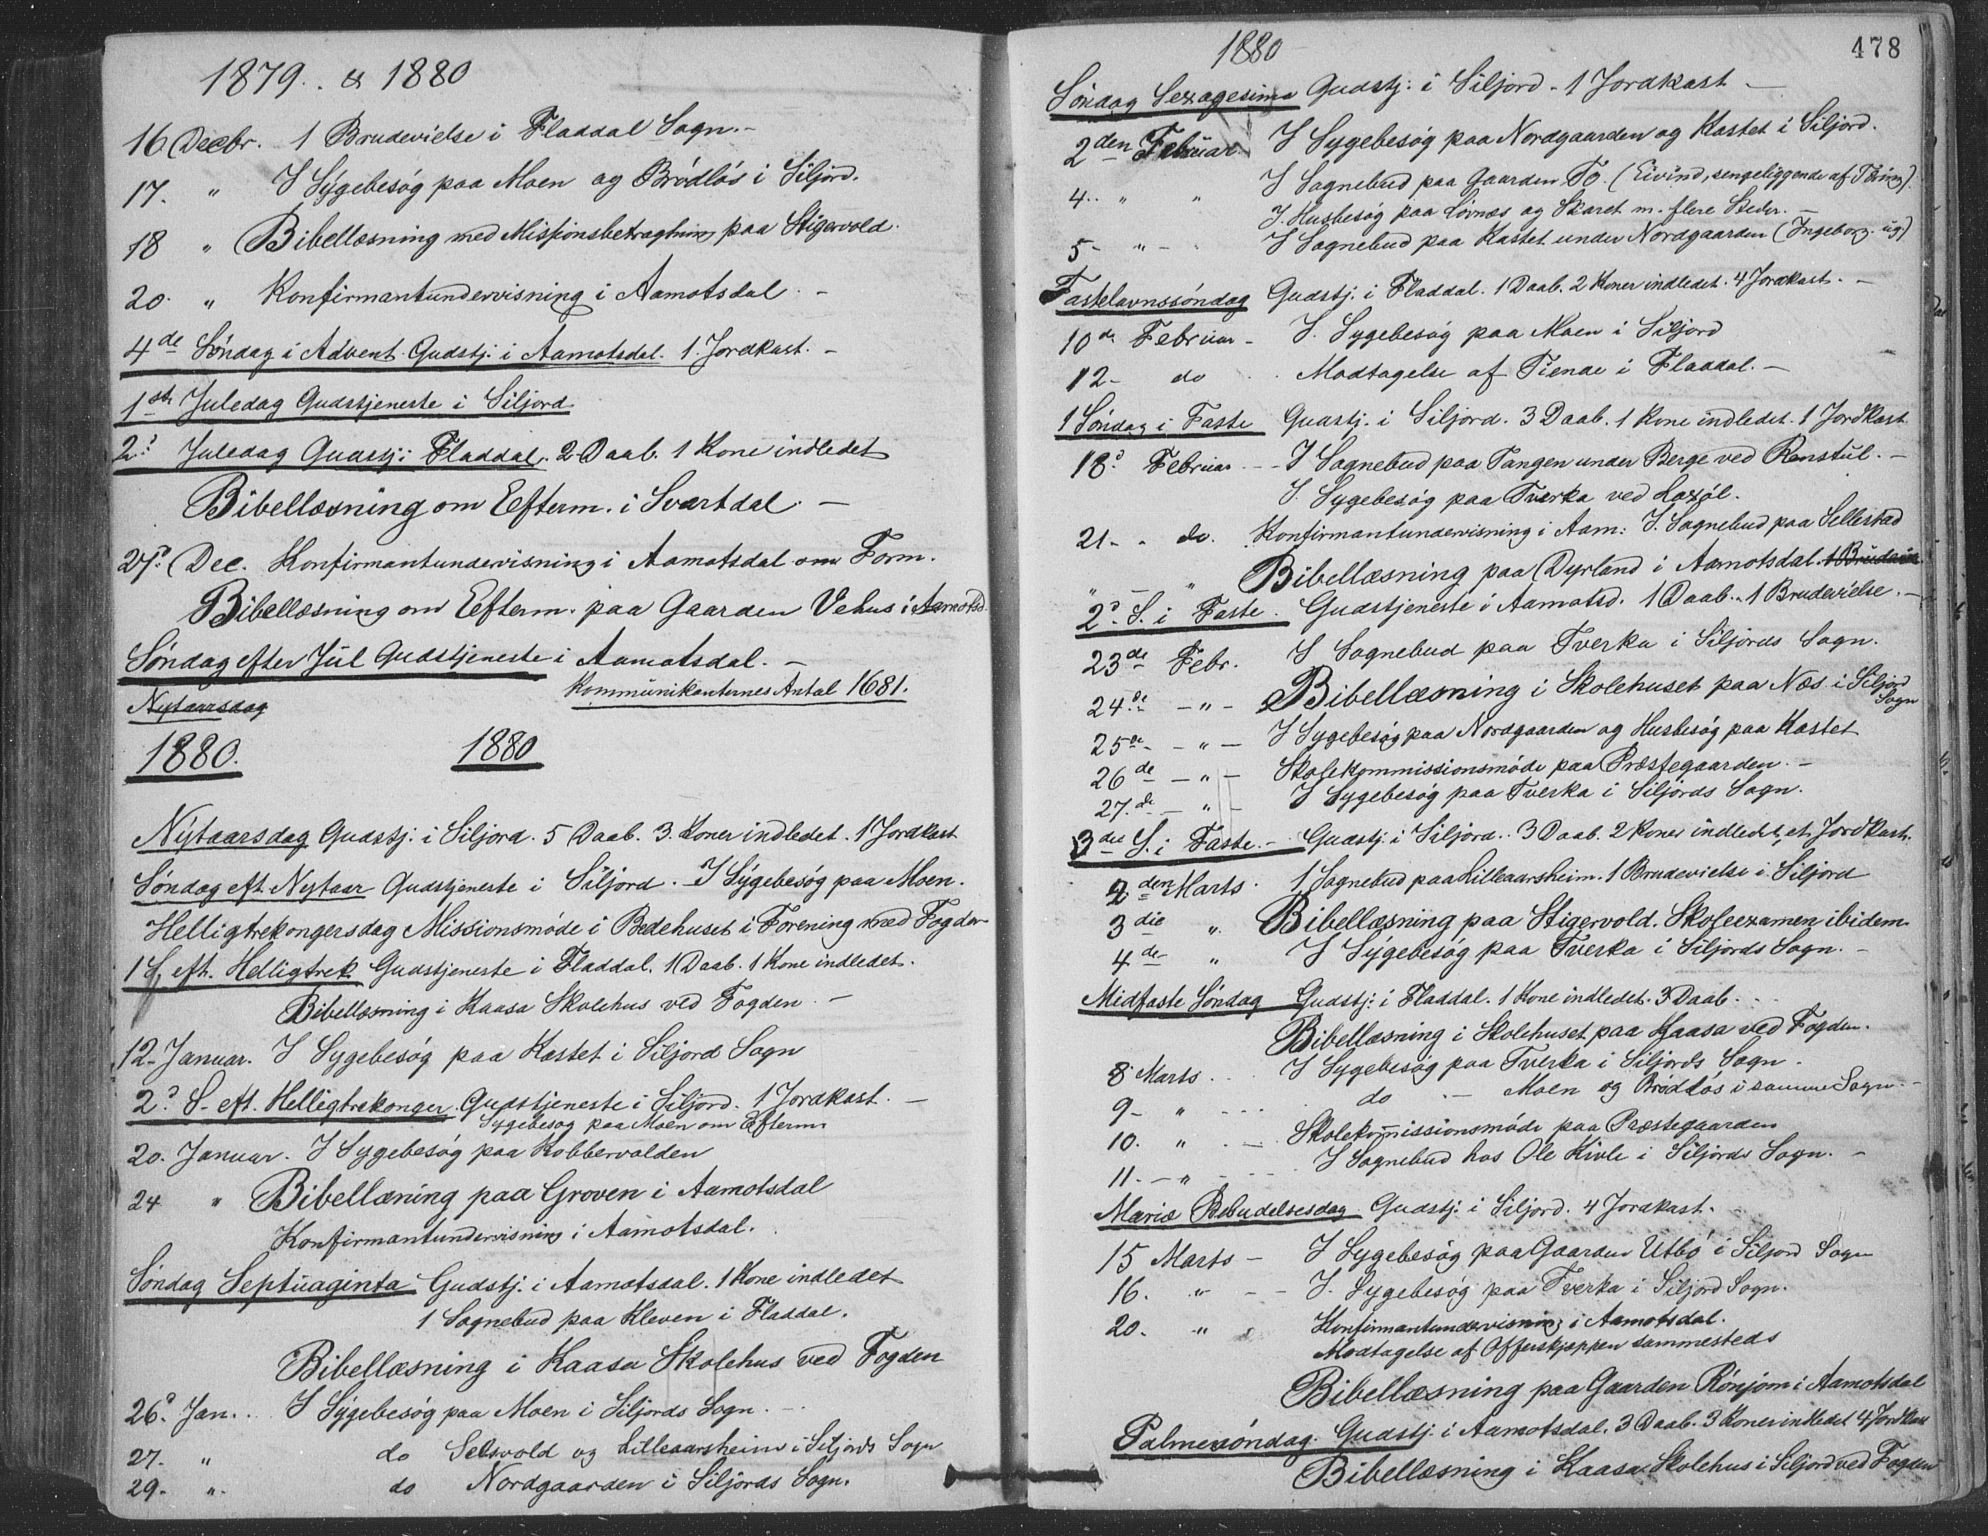 1879. & 1880
16 Decbr. 1 Brudevielse i Fladdal Sogn. –
17. " I Sygebesøg paa Moen og Brødløs i Siljord.
18 " Bibellæsning med Missionsbetragtning paa Stigervold.
20. " Konfirmantundervisning i Aamotsdal. –
4de Søndag i Advent. Gudstj. i Aamotsdal. 1. Jordkast. –
1ste Juledag Gudstjeneste i Siljord
2. Juledag Gudstj: Fladdal. 2 Daab. 1 Kone indledet
Bibellæsning om Efterm. i Svartdal. –
27. Dec. Konfirmantundervisning i Aamotsdal om Form.
Bibellæsning om Efterm. paa Gaarden Vehus i Aamotsd.
Søndag efter Jul Gudstjeneste i Aamotsdal. –
Kommunikanternes Antal 1681.
Nytaarsdag
1880. 1880
Nytaarsdag Gudstj. i Siljord. 5 Daab. 3. Koner indledet. 1 Jordkast
Søndag eft. Nytaar Gudstjeneste i Siljord. – I Sygebesøg paa Moen.
Helligtrekongersdag Missionsmøde i Bedehuset i Forening med Fogden
1 S. eft. Helligtrek Gudstjeneste i Fladdal. 1 Daab. 1 Kone indledet.
Bibellæsning i Kaasa Skolehus ved Fogden. –
12. Januar. I Sygebesøg paa Kastet i Siljord Sogn
2. S. eft. Helligtrekonger. Gudstjeneste i Siljord. 1 Jordkast. –
Sygebesøg paa Moen om Efterm.
20. Januar. I Sygebesøg paa Kobbervolden
24 " Bibellæning paa Groven i Aamotsdal
Konfirmantundervisning i Aamotsdal.
Søndag Septuaginta Gudstj. i Aamotsdal. 1 Kone indledet
1 Sognebud paa Kleven i Fladdal.
Bibellæsning i Kaasa Skolehus ved Fogden
26. Jan. . I Sygebesøg paa Moen i Siljords Sogn. –
27. " do Selsvold og Lilleaarsheim i Siljords Sogn
29. " do Nordgaarden i Siljords Sogn.
1880
478
Søndag Sexagesima Gudstj: i Siljord. 1 Jordkast –
2den Februar. I Sygebesøg paa Nordgaarden og Kastet i Siljord.
4. " " I Sognebud paa Gaarden To. (Eivind, sengeliggende af Tæring).
I. Husbesøg paa Lørnæs og Skaret m. flere Steder. –
5 – " – I Sognebud paa Kastet under Nordgaarden (Ingeborg. ug)
Fastelavnssøndag Gudstj. i Fladdal. 1 Daab. 2 Koner indledet. 4 Jordkast. –
10de Februar – I. Sygebesøg paa Moen i Siljord
12 – do Modtagelse af Tiende i Fladdal. –
1 Søndag i Faste Gudstj. i Siljord. 3 Daab. 1 Kone indledet. 1 Jordkast
18. Februar – – I Sognebud paa Tangen under Berge ved Renstul. –
I. Sygebesøg paa Tverka ved Laxøl.
21 – . do. Konfirmantundervisning i Aam: I. Sognebud paa Sellestad
" – " Bibellæsning paa Dyrland i Aamotsdal. 1 Brudevie
2. S. i Faste. Gudstjeneste i Aamotsd. 1 Daab. 1 Brudevielse. –
23de Febr. I Sognebud paa Tverka i Siljords Sogn.
24de – " – Bibellæsning i Skolehuset paa Næs i Siljord
Sogn
25de – " – I Sygebesøg paa Nordgaarden og Husbesøg paa Kastet
26de – " – Skolekommissionsmøde paa Præstegaarden. –
27.de – " – I Sygebesøg paa Tverka i Siljords Sogn.
3die S. i Faste. – Gudstj. i Siljord. 3 Daab. 2 Koner indledet, et Jordkast.
2den Marts. 1 Sognebud paa Lilleaarsheim. 1 Brudevielse i Siljord
3die " Bibellæsning paa Stigervold. Skoleexamen ibidem.
4de " I Sygebesøg paa Tverka i Siljords Sogn. –
Midfaste Søndag Gudstj: i Fladdal. 1 Kone indledet. 3 Daab. –
Bibellæsning i Skolehuset paa Kaasa ved Fogden.
8 Marts . . I Sygebesøg paa Tverka i Siljords Sogn.
9 – " – – – do . – Moen og Brødløs i samme Sogn. –
10. " . – Skolekomissionsmøde paa Præstegaarden
11. – " – I Sognebud hos Ole Kivle i Siljords Sogn. –
Mariæ Bebudelsesdag Gudstj. i Siljord. 4 Jordkast.
15 Marts – I Sygebesøg paa Gaarden Utbø i Siljord Sogn
16. " – – I. Sygebesøg paa Tverka i Siljord Sogn.
20. " Konfirmantundervisning i Aamotsdal.
Modtagelse af Offerskjæppen sammesteds
Bibellæsning paa Gaarden Rønjom i Aamotsdal
Palmesøndag. Gudstj. i Aamotsdal. 3 Daab. 3 Koner indledet 4 Jordkast
Bibellæsning i Kaasa Skolehus i Siljord ved Fogden